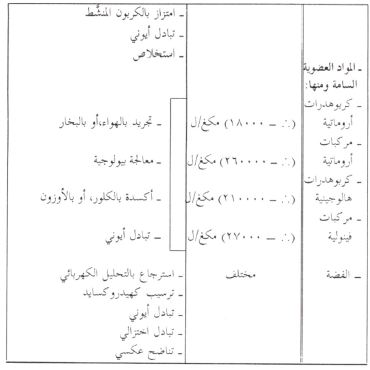 ـ امتزاز بالكربون المنشَّط
ـ تبادل أيوني
ـ استخلاص
ـ المواد العضوية
السامة ومنها:
ـ كربوهدرات
أروماتية (∴ ــ ١٨٠٠٠) مكغ/ل ـ تجريد بالهواء،أو بالبخار
ـ مركبات
أروماتية (∴ ــ ٢٦٠٠٠٠) مكغ/ل ـ معالجة بيولوجية
ـ كربوهدرات
هالوجينية (∴ ــ ٢١٠٠٠٠) مكغ/ل ـ أكسدة بالكلور، أو بالأوزون
ـ مركبات
فينولية (∴ ــ ٢٧٠٠٠) مكغ/ل ـ تبادل أيوني
ـ الفضة مختلف ـ استرجاع بالتحليل الكهربائي
ـ ترسيب كهيدروكسايد
ـ تبادل أيوني
ـ تبادل اختزالي
ـ تناضح عكسي